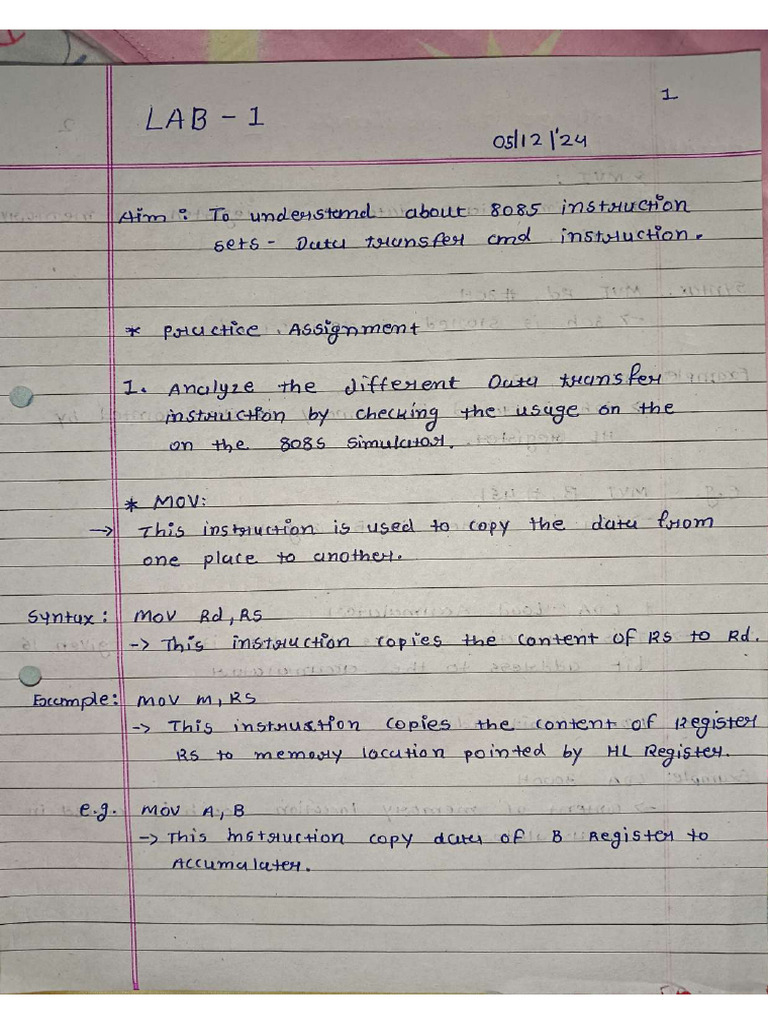 1
LAB - 1
05/12/'24
Aim : To understand about 8085 instruction
sets - Data transfer cmd instruction.
* Practice Assignment
1. Analyze the different Data transfer
instruction by checking the usage on the
on the 8085 simulator.
* MOV:
→ This instruction is used to copy the data from
one place to another.
Syntax : MOV Rd, RS
-> This instruction copies the content of RS to Rd.
Example : MOV M, RS
-> This instruction copies the content of Register
RS to memory location pointed by HL Register.
e.g. MOV A, B
-> This instruction copy data of B Register to
Accumulater.